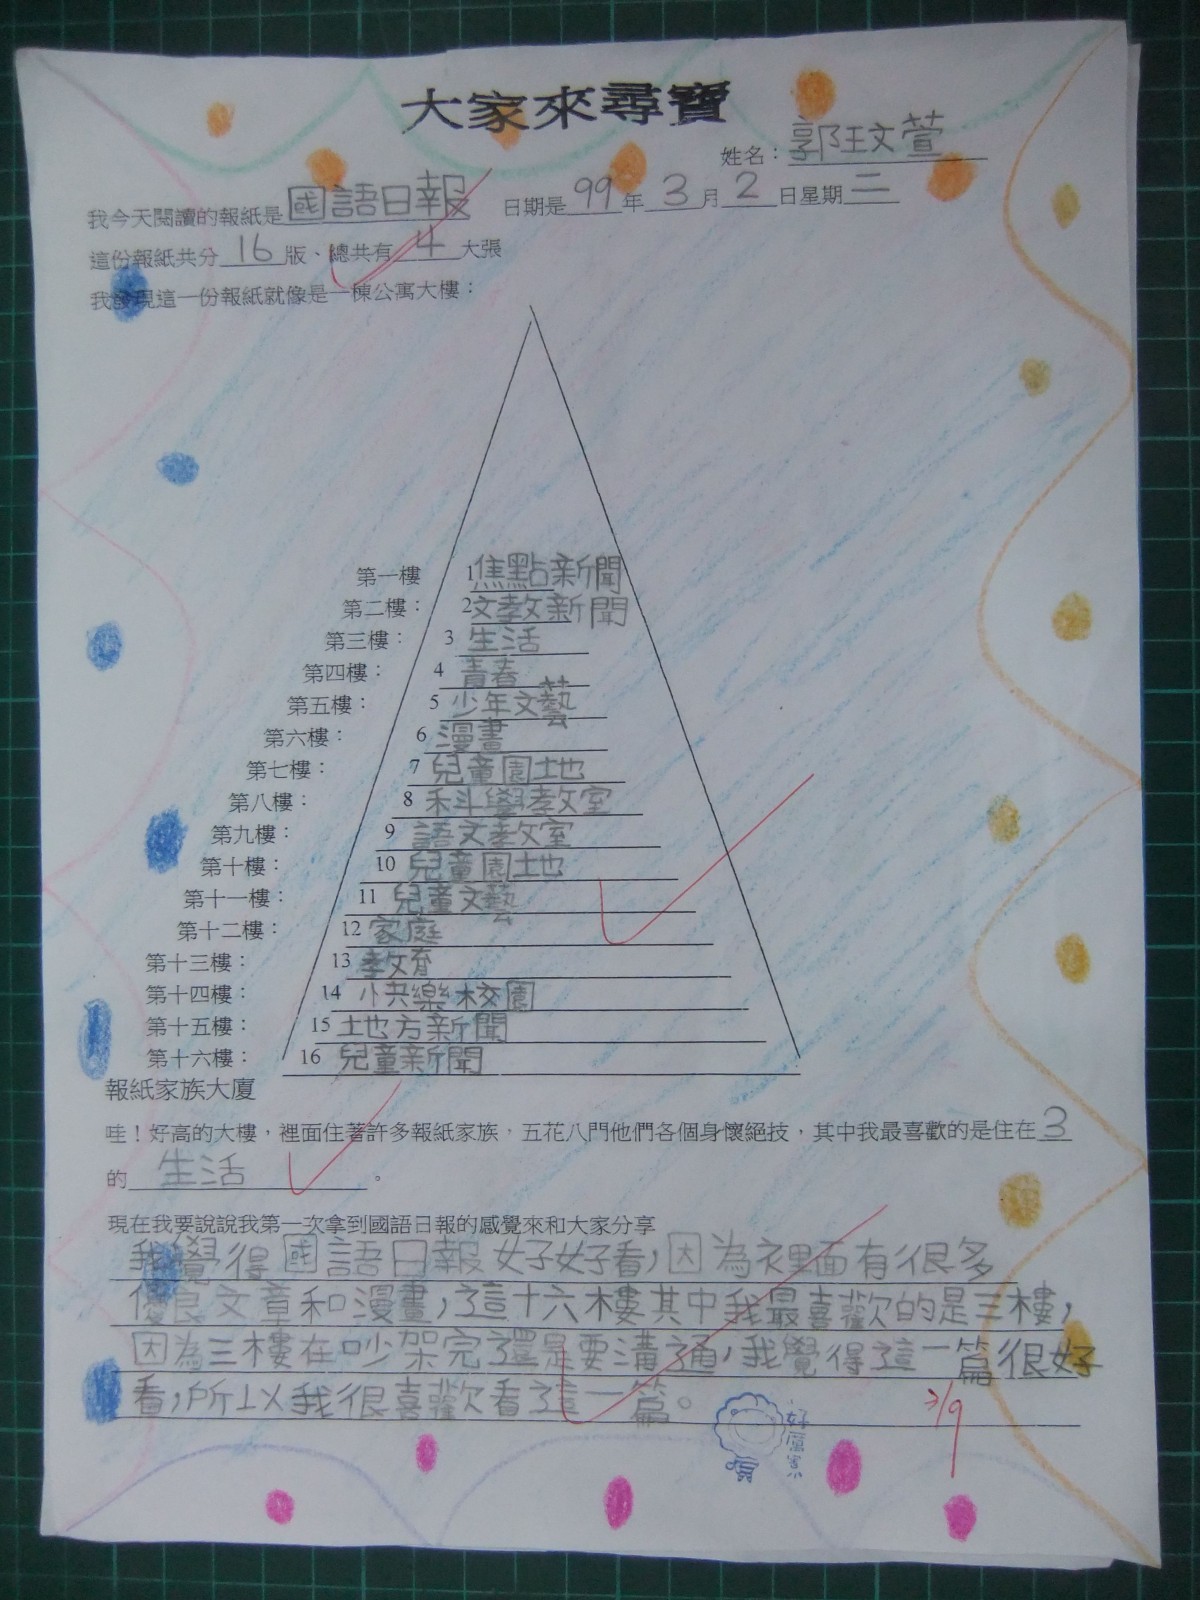 大家來尋寶
姓名：郭玟萱
我今天閱讀的報紙是國語日報 日期是99年3月2日星期二
這份報紙共分16版、總共有4大張
我發現這一份報紙就像是一棟公寓大樓：
第一樓 1焦點新聞
第二樓： 2文教新聞
第三樓： 3生活
第四樓： 4青春
第五樓： 5少年文藝
第六樓： 6漫畫
第七樓： 7兒童園地
第八樓： 8科學教室
第九樓： 9語文教室
第十樓： 10兒童園地
第十一樓： 11兒童文藝
第十二樓： 12家庭
第十三樓： 13教育
第十四樓： 14快樂校園
第十五樓： 15地方新聞
第十六樓： 16兒童新聞
報紙家族大廈
哇！好高的大樓，裡面住著許多報紙家族，五花八門他們各個身懷絕技，其中我最喜歡的是住在3
的生活。
現在我要說說我第一次拿到國語日報的感覺來和大家分享
我覺得國語日報好好看，因為裡面有很多
優良文章和漫畫，這十六樓其中我最喜歡的是三樓，
因為三樓在吵架完還是要溝通，我覺得這一篇很好
看，所以我很喜歡看這一篇。
3/9
好厲害